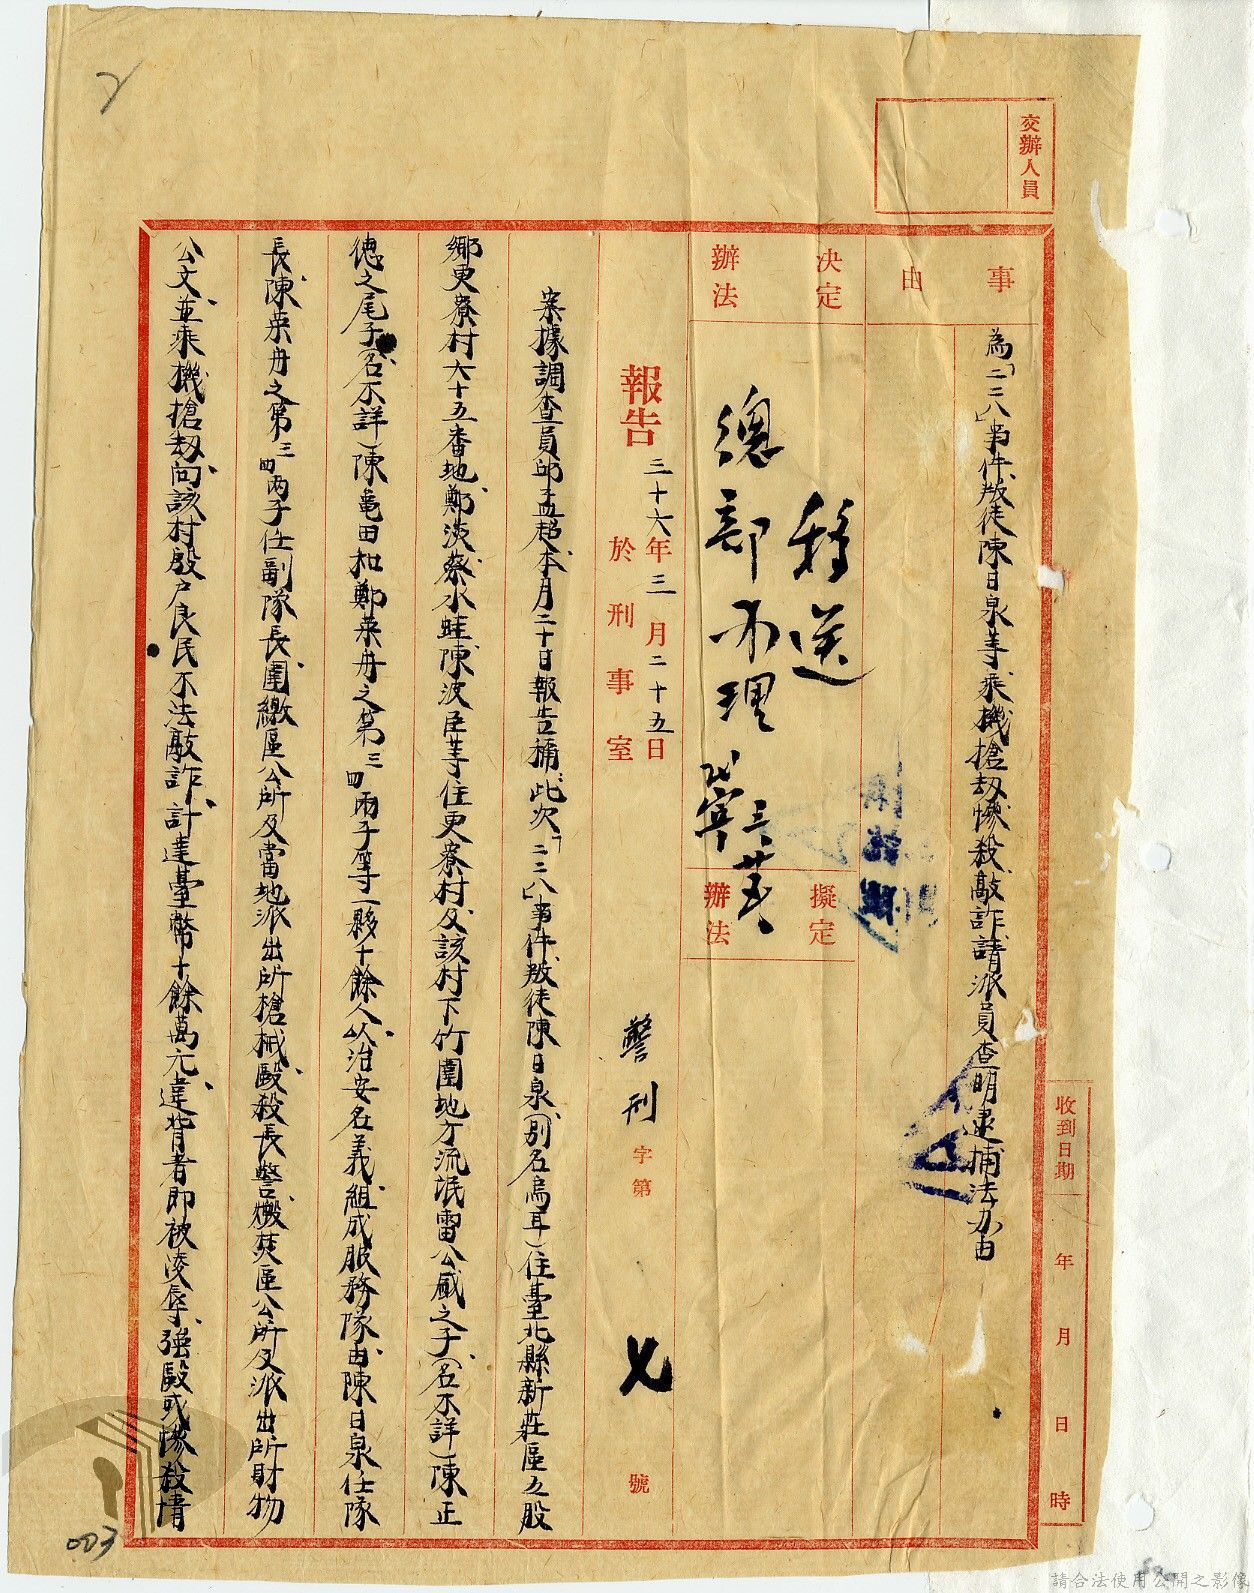 交辦人員
事由
為「二二八」事件叛徒陳日泉等乘機搶劫慘殺敲詐請派員查明逮捕法办由
決定辦法
移送
總部办理
三 廿五
擬定辦法
收到日期 年 月 日 時
報告 三十六年三月二十五日
於刑事室
警刑字第 七 號
案據調查員邱孟超本月二十日報告稱此次「二二八」事件叛徒陳日泉(別名烏耳)住臺北縣新莊區五股
鄉更寮村六十五番地鄭淡蔡水蛙陳波臣等住更寮村及該村下竹圍地方流氓雷公咸之子(名不詳)陳正
德之尾子(名不詳)陳龜田和鄭葉舟之第三四兩子等一夥十餘人以治安名義組成服務隊由陳日泉任隊
長陳葉舟之第三四兩子任副隊長圍繳區公所及當地派出所槍械毆殺長警燬焚區公所及派出所財物
公文並乘機搶劫向該村殷戶良民不法敲詐計達臺幣十餘萬元違背者即被凌辱強毆或慘殺情
003
請合法使用公開之影像